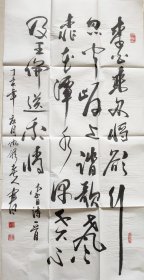 李白乘舟将欲行
忽闻岸上踏歌声
桃花潭水深千尺不
及汪伦送我情 李白诗一首